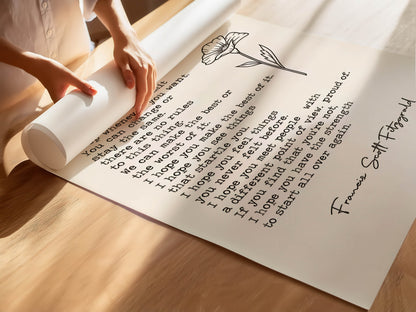 whoever you want
You can change or
stay the same,
there are no rules
to this thing.
We can make the best or
the worst of it.
I hope you make the best of it.
I hope you see things
that startle you.
I hope you feel things
you never felt before.
I hope you meet people with
a different point of view.
proud of
If you find that you're not
I hope you have the strength
to start all over again.
Francis Scott Fitzgerald